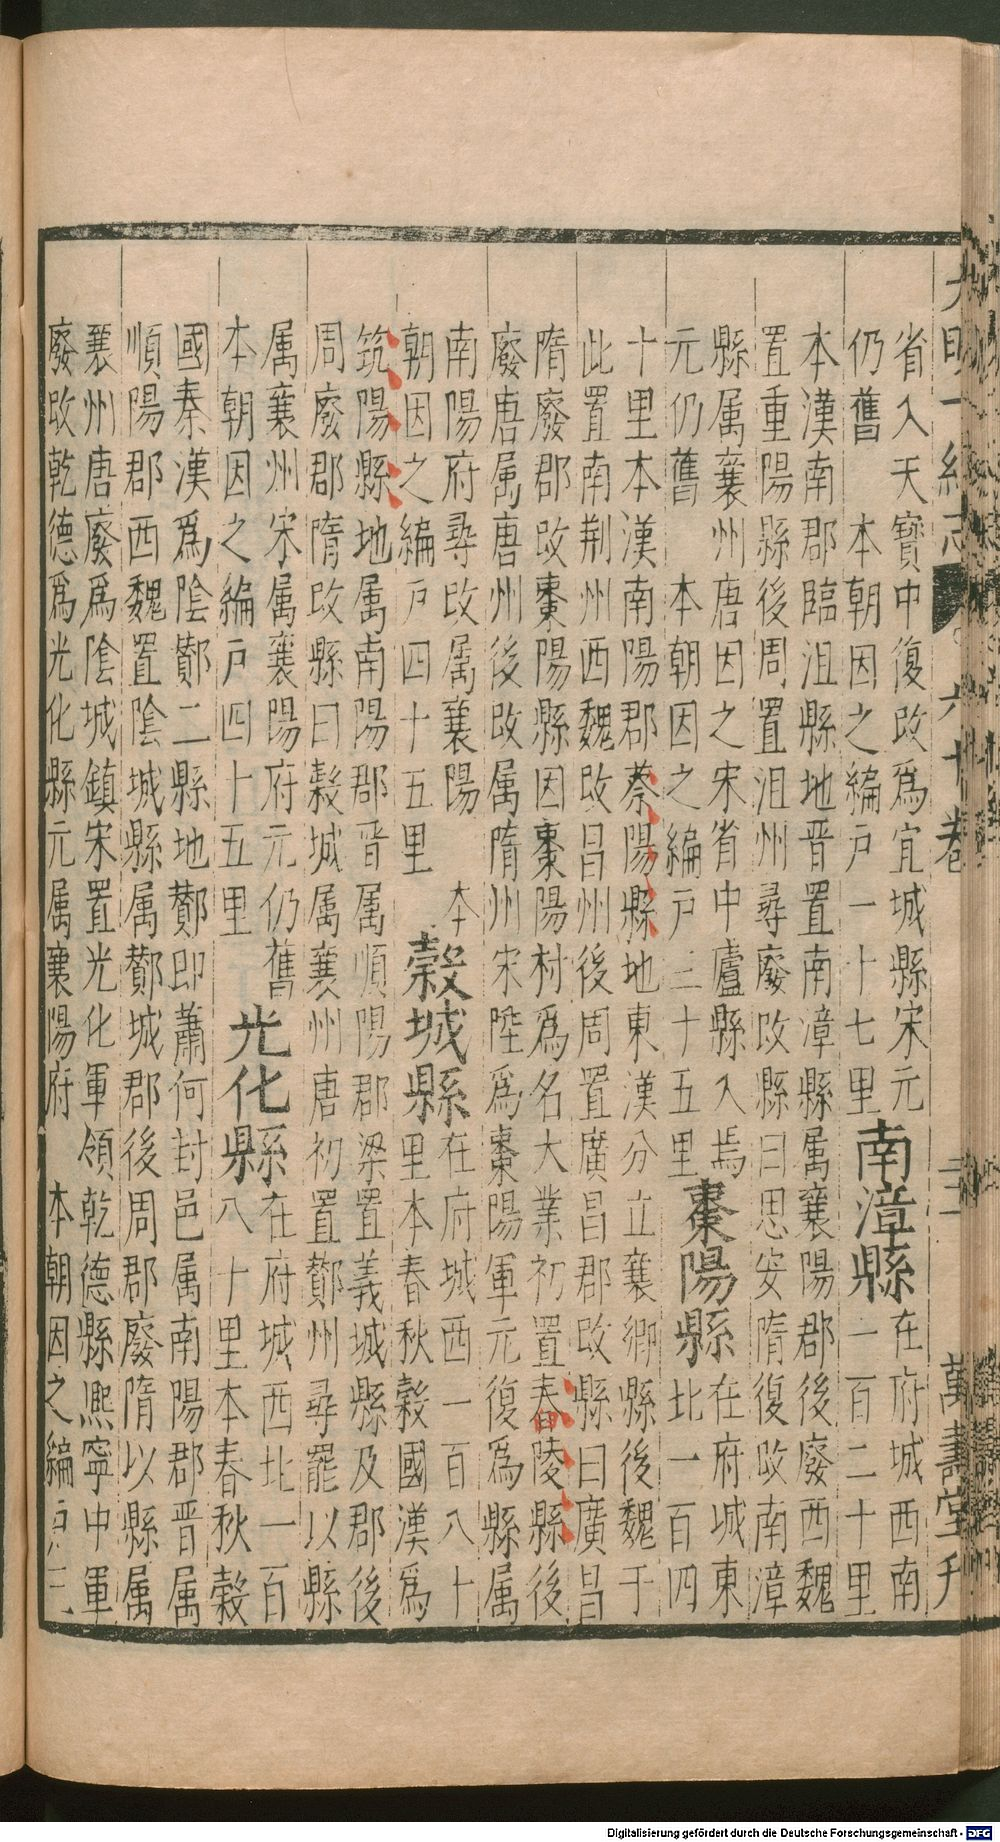 大明一統志 六十卷 三 萬壽堂刋
省入天寶中復改爲宜城縣宋元
仍舊 本朝因之編戸一十七里
南漳縣 在府城西南一百二十里
本漢南郡臨沮縣地晉置南漳縣属襄陽郡後廢西魏
置重陽縣後周置沮州尋廢改縣曰思安隋復改南漳
縣属襄州唐因之宋省中廬縣入焉
元仍舊 本朝因之編戸三十五里
棗陽縣 在府城東北一百四十里
本漢南陽郡蔡陽縣地東漢分立襄鄉縣後魏于
此置南荆州西魏改昌州後周置廣昌郡改縣曰廣昌
隋廢郡改棗陽縣因棗陽村爲名大業初置舂陵縣後
廢唐属唐州後改属隋州宋陞爲棗陽軍元復爲縣属
南陽府尋改属襄陽 本
朝因之編戸四十五里
穀城縣 在府城西一百八十里
本春秋穀國漢爲
筑陽縣地属南陽郡晉属順陽郡梁置義城縣及郡後
周廢郡隋改縣曰穀城属襄州唐初置酇州尋罷以縣
属襄州宋属襄陽府元仍舊
本朝因之編戸四十五里
光化縣 在府城西北一百八十里
本春秋穀
國秦漢爲陰酇二縣地酇即蕭何封邑属南陽郡晉属
順陽郡西魏置陰城縣属酇城郡後周郡廢隋以縣属
襄州唐廢爲陰城鎮宋置光化軍領乾德縣熈寧中軍
廢改乾德爲光化縣元属襄陽府 本朝因之編戸
Digitalisierung gefördert durch die Deutsche Forschungsgemeinschaft - DFG